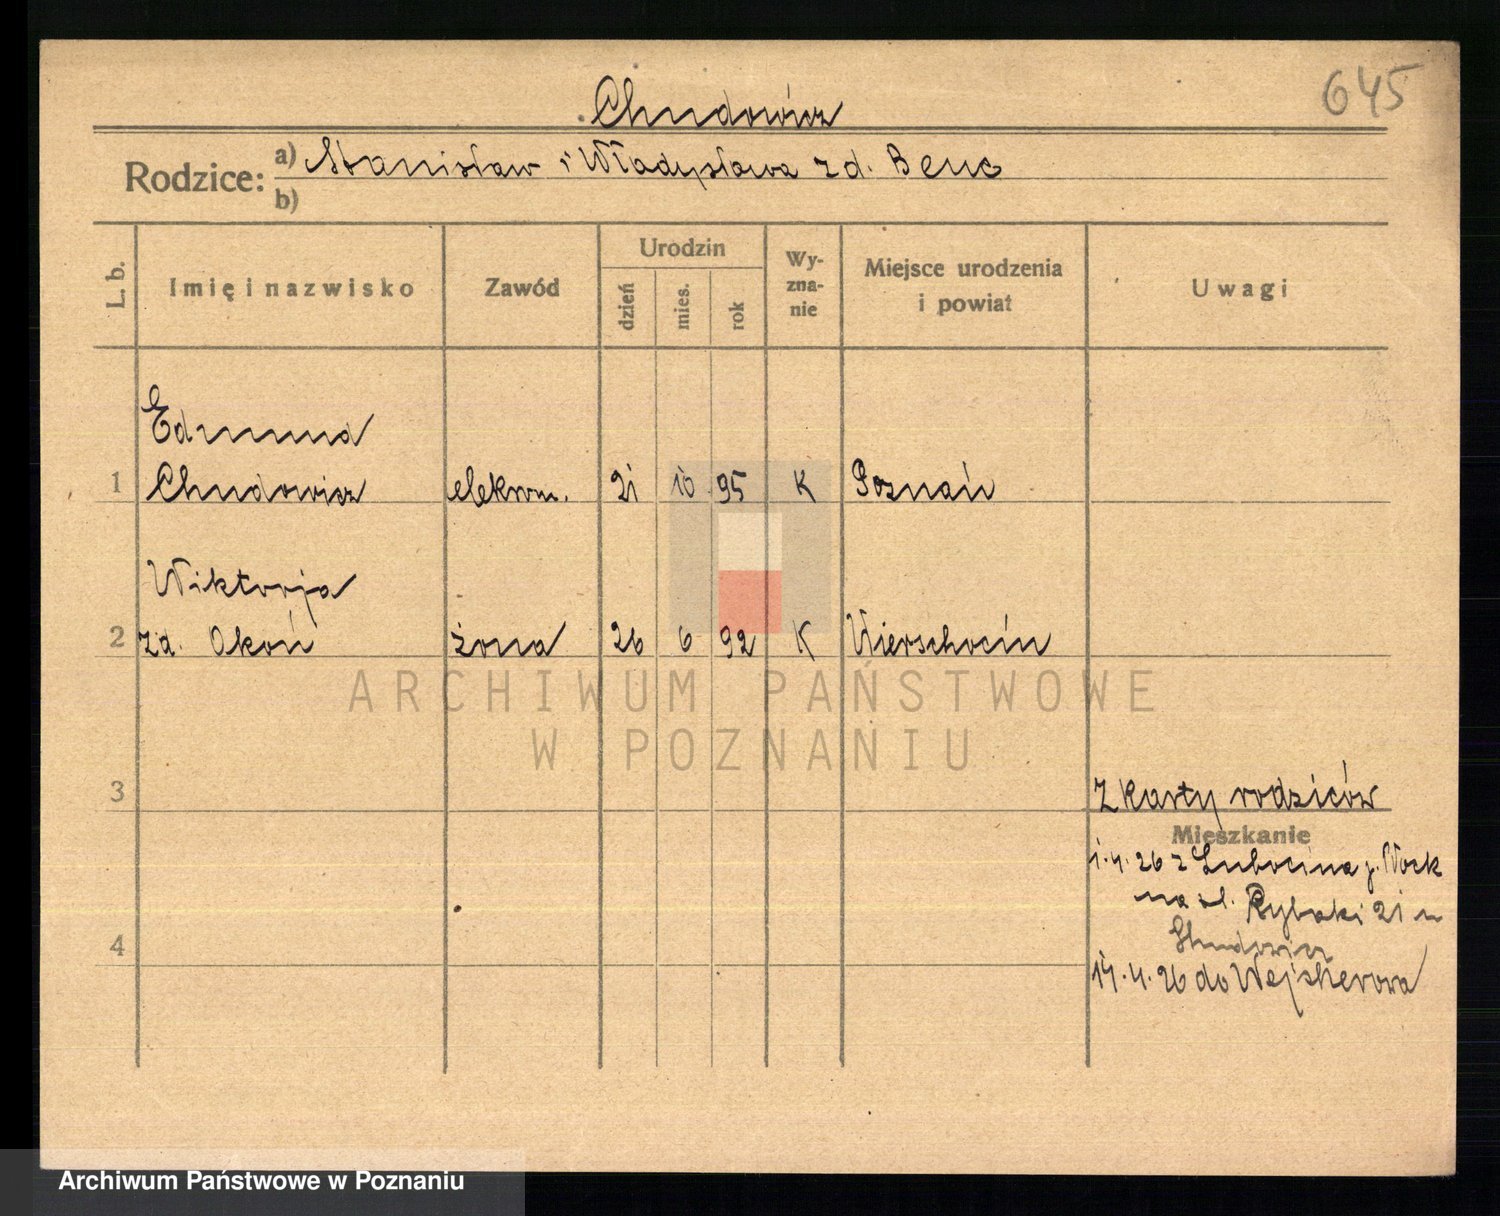 645
Chudowicz
Rodzice: a) Stanisław i Władysława z d. Benc
b)
L. b.
Imię i nazwisko
Zawód
Urodzin
dzień
mies.
rok
Wy-
zna-
nie
Miejsce urodzenia
i powiat
Uwagi
Edmund
1 Chudowicz elektrom. 21 10 95 K Poznań
Wiktorja
2 zd. Okoń żona 26 6 92 K Wierschocin
ARCHIWUM PAŃSTWOWE
W POZNANIU
3 z karty rodziców
Mieszkanie
1.4.26 z Lubocina p.
na ul. Rybaki 21 u
4 Chudowicz
14.4.26 do Wejherowa
Archiwum Państwowe w Poznaniu